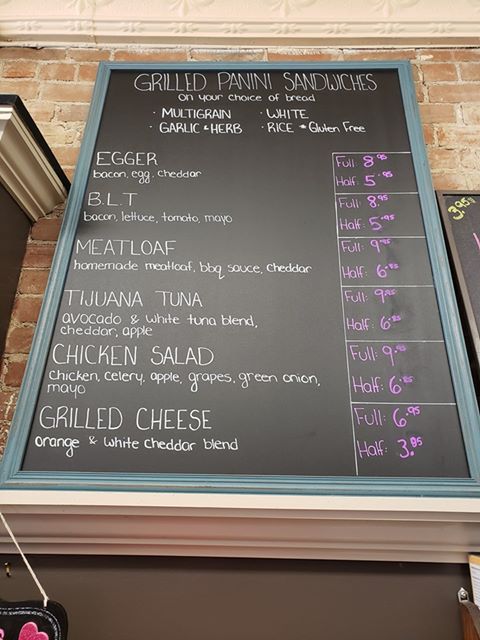 GRILLED PANINI SANDWICHES
on your choice of bread
· MULTIGRAIN · WHITE
· GARLIC & HERB · RICE * Gluten Free
EGGER
bacon, egg, cheddar
Full: 8.95
Half: 5.95
B.L.T
bacon, lettuce, tomato, mayo
Full: 8.95
Half: 5.95
MEATLOAF
homemade meatloaf, bbq sauce, cheddar
Full: 9.95
Half: 6.95
TIJUANA TUNA
avocado & white tuna blend,
cheddar, apple
Full: 9.95
Half: 6.95
CHICKEN SALAD
chicken, celery, apple, grapes, green onion,
mayo
Full: 9.95
Half: 6.95
GRILLED CHEESE
orange & white cheddar blend
Full: 6.95
Half: 3.95
3.95